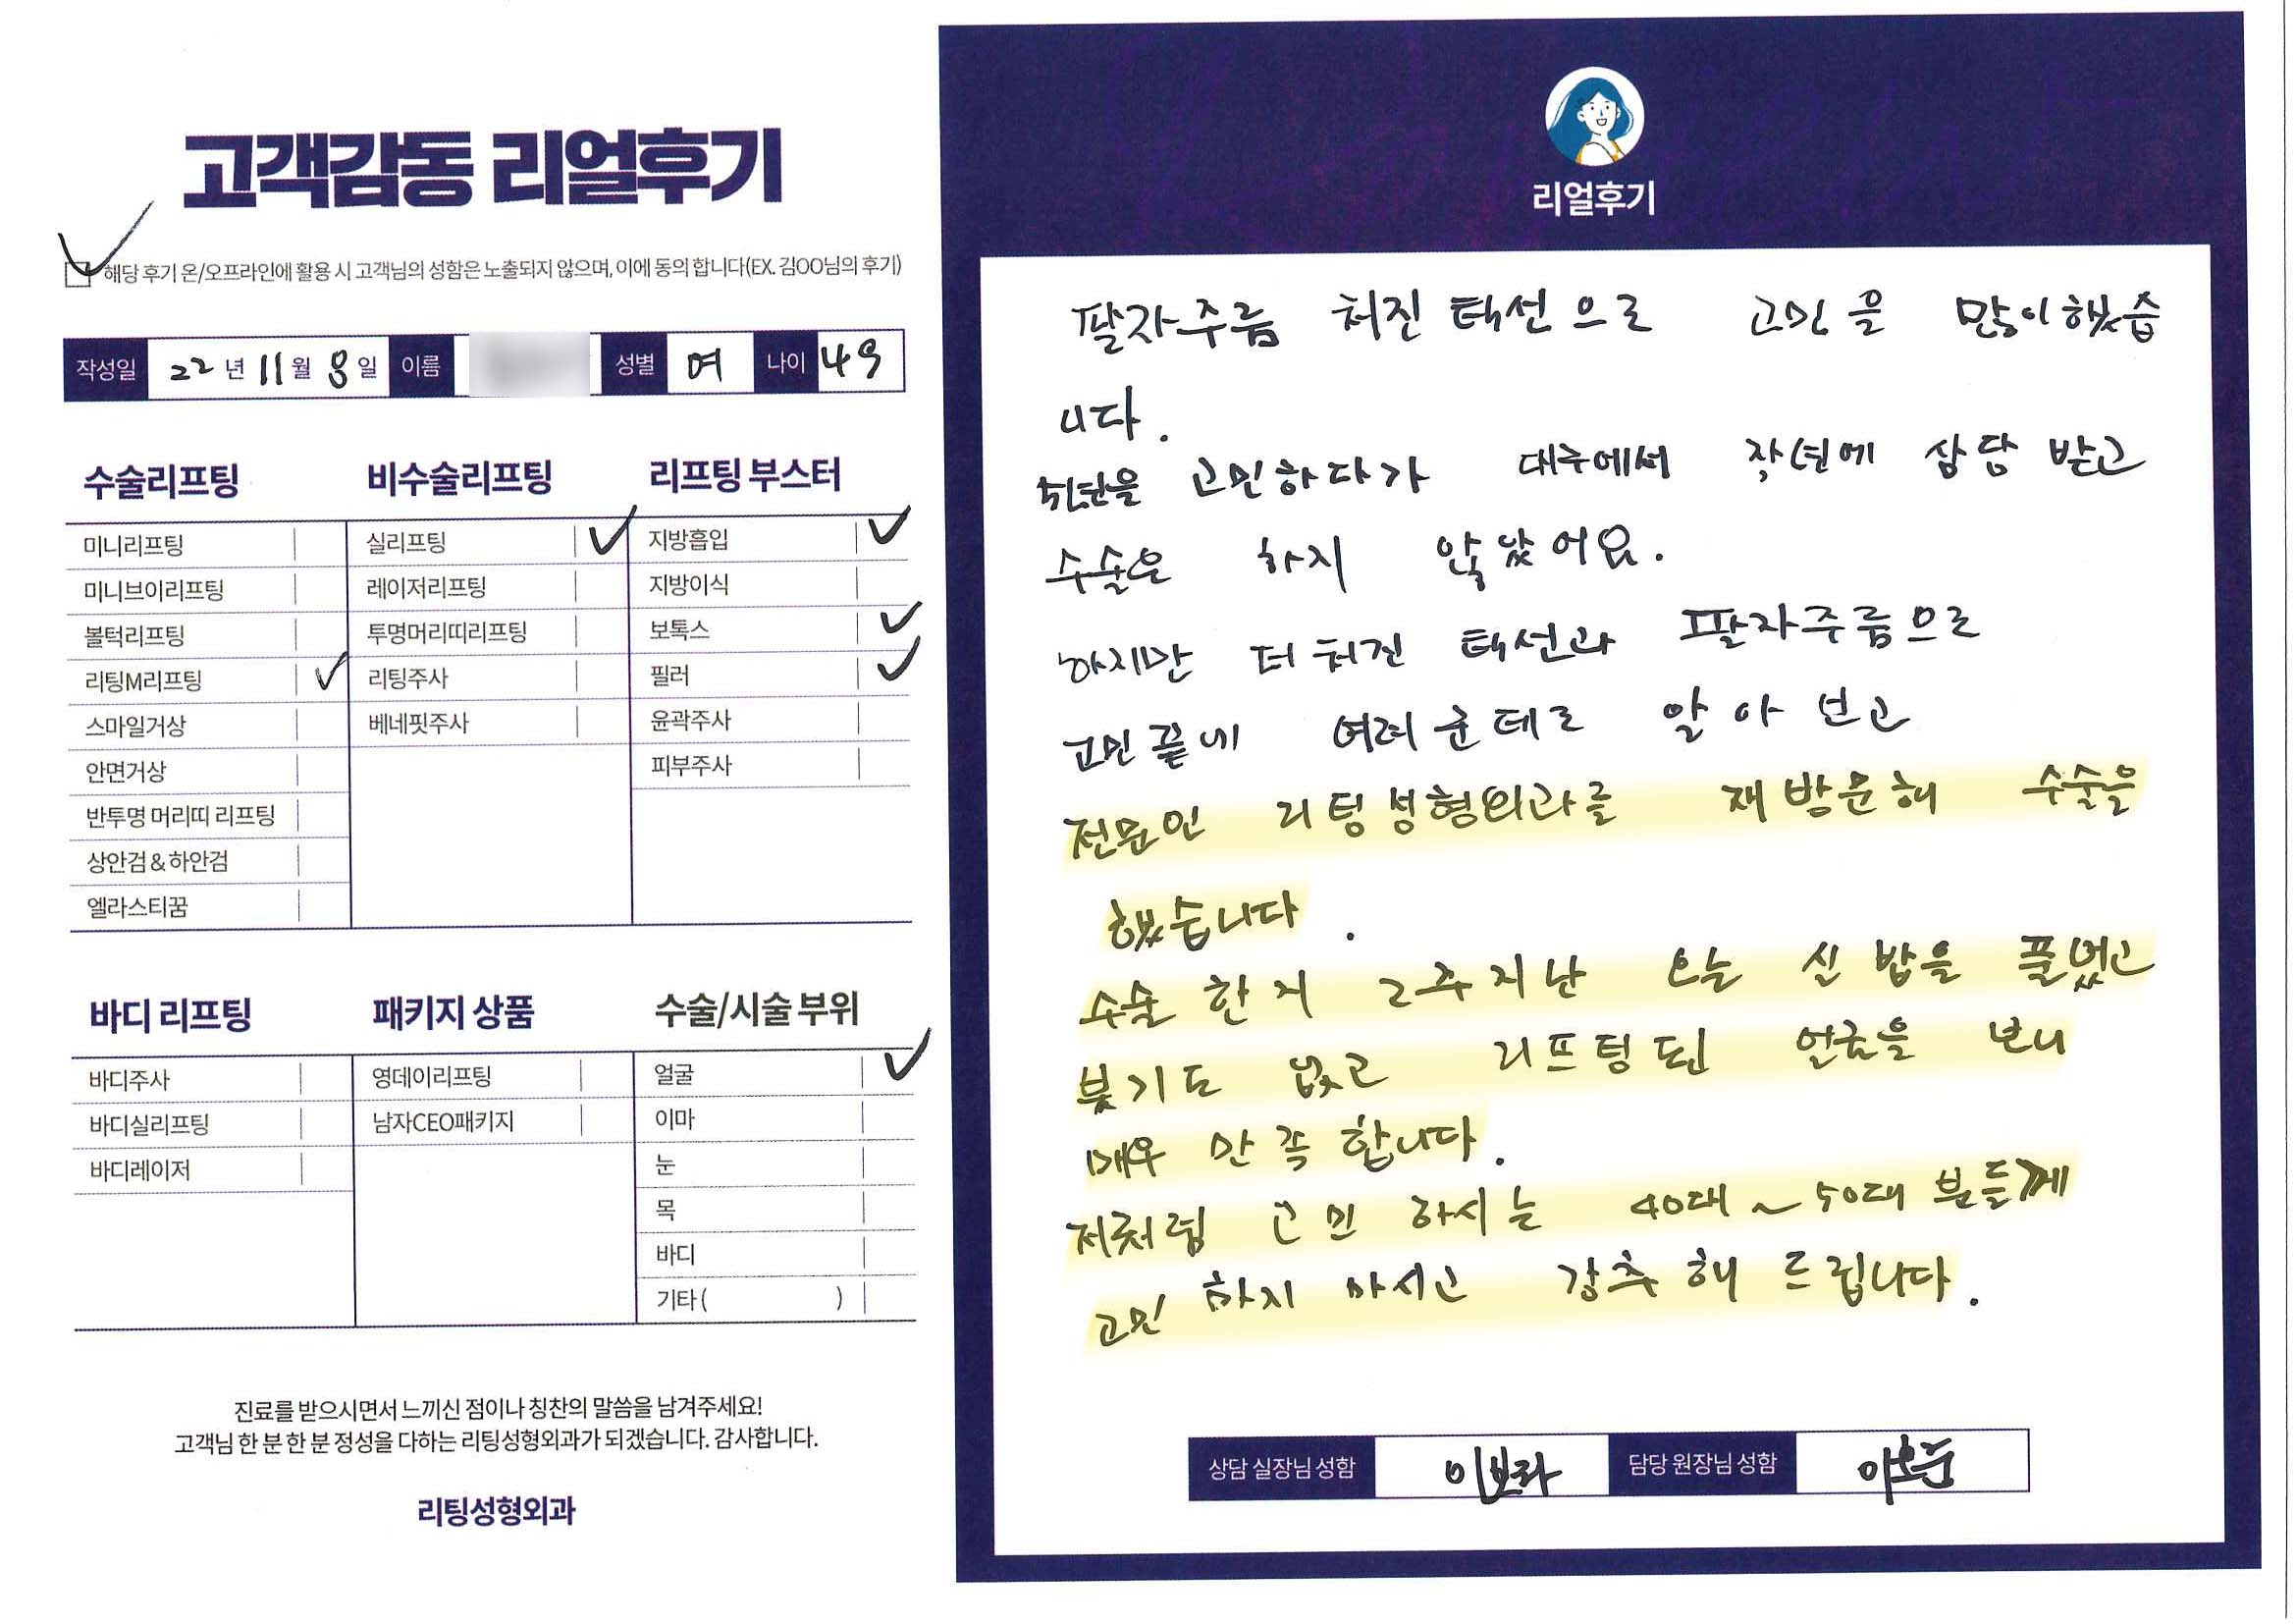 고객감동 리얼후기
해당 후기 온/오프라인에 활용 시 고객님의 성함은 노출되지 않으며, 이에 동의 합니다(EX. 김OO님의 후기)
작성일 22년 11월 8일 이름 성별 여 나이 49
수술리프팅
미니리프팅
미니브이리프팅
볼턱리프팅
리팅M리프팅
스마일거상
안면거상
반투명 머리띠 리프팅
상안검 & 하안검
엘라스티꿈
비수술리프팅
실리프팅
레이저리프팅
투명머리띠리프팅
리팅주사
베네핏주사
리프팅 부스터
지방흡입
지방이식
보톡스
필러
윤곽주사
피부주사
바디 리프팅
바디주사
바디실리프팅
바디레이저
패키지 상품
영데이리프팅
남자CEO패키지
수술/시술 부위
얼굴
이마
눈
목
바디
기타 ( )
진료를 받으시면서 느끼신 점이나 칭찬의 말씀을 남겨주세요!
고객님 한 분 한 분 정성을 다하는 리팅성형외과가 되겠습니다. 감사합니다.
리팅성형외과
리얼후기
팔자주름 처진 턱선으로 고민을 많이했습
니다.
고민하다가 대구에서 작년에 상담 받고
수술은 하지 않았어요.
하지만 더 처진 턱선과 팔자주름으로
고민끝에 여러군데로 알아 보고
전문인 리팅성형외과를 재방문해 수술을
했습니다.
수술 한지 2주지난 오늘 실밥을 풀었고
붓기도 없고 리프팅된 얼굴을 보니
매우 만족합니다.
저처럼 고민 하시는 40대~50대 분들께
고민 하지 마시고 강추 해 드립니다.
상담 실장님 성함 이보라 담당 원장님 성함